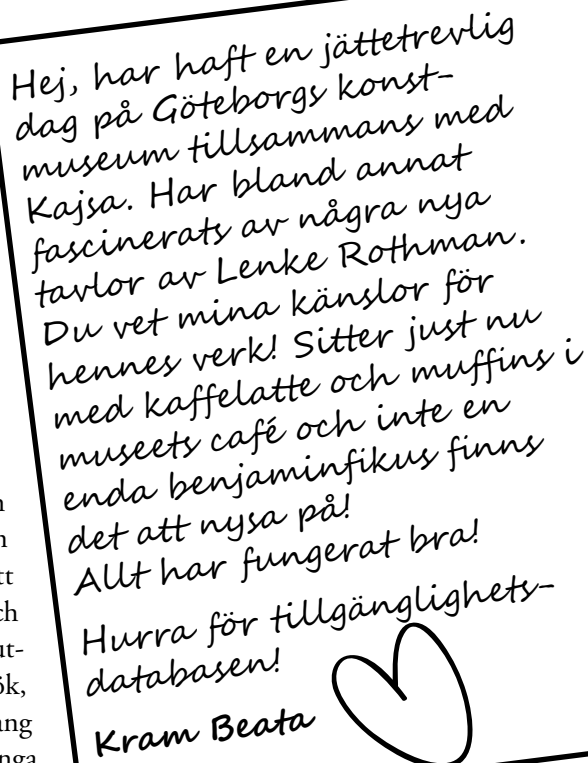 Hej, har haft en jättetrevlig
dag på Göteborgs konst-
museum tillsammans med
Kajsa. Har bland annat
fascinerats av några nya
tavlor av Lenke Rothman.
Du vet mina känslor för
hennes verk! Sitter just nu
med kaffelatte och muffins i
museets café och inte en
enda benjaminfikus finns
det att nysa på!
Allt har fungerat bra!
Hurra för tillgänglighets-
databasen!
Kram Beata